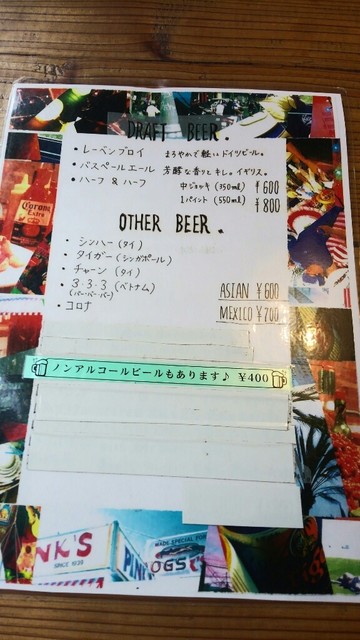 DRAFT BEER.
・レーベンブロイ まろやかで軽いドイツビール。
・バスペールエール 芳醇な香りとキレ。イギリス。
・ハーフ & ハーフ 中ジョッキ (350ml) ¥600
1パイント (550ml) ¥800
OTHER BEER.
・シンハー (タイ)
・タイガー (シンガポール)
・チャーン (タイ)
・3・3・3 (ベトナム)
(バー・バー・バー)
ASIAN ¥600
・コロナ
MEXICO ¥700
ノンアルコールビールもあります♪ ¥400
Corona
Extra
NK'S
SINCE 1939
MADE SPECIAL FOR
PINK
OGS